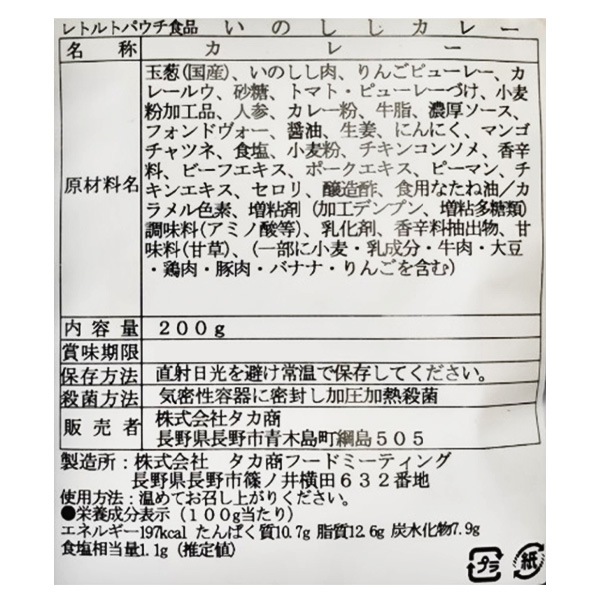 レトルトパウチ食品 いのししカレー
名称 カレー
原材料名
玉葱(国産)、いのしし肉、りんごピューレー、カ
レールウ、砂糖、トマト・ピューレーづけ、小麦
粉加工品、人参、カレー粉、牛脂、濃厚ソース、
フォンドヴォー、醤油、生姜、にんにく、マンゴ
チャツネ、食塩、小麦粉、チキンコンソメ、香辛
料、ビーフエキス、ポークエキス、ピーマン、チ
キンエキス、セロリ、醸造酢、食用なたね油/カ
ラメル色素、増粘剤(加工デンプン、増粘多糖類)
調味料(アミノ酸等)、乳化剤、香辛料抽出物、甘
味料(甘草)、(一部に小麦・乳成分・牛肉・大豆
・鶏肉・豚肉・バナナ・りんごを含む)
内容量 200g
賞味期限
保存方法 直射日光を避け常温で保存してください。
殺菌方法 気密性容器に密封し加圧加熱殺菌
販売者 株式会社タカ商
長野県長野市青木島町綱島505
製造所:株式会社 タカ商フードミーティング
長野県長野市篠ノ井横田632番地
使用方法:温めてお召し上がりください。
●栄養成分表示(100g当たり)
エネルギー197kcal たんぱく質10.7g 脂質12.6g 炭水化物7.9g
食塩相当量1.1g(推定値)
プラ 紙